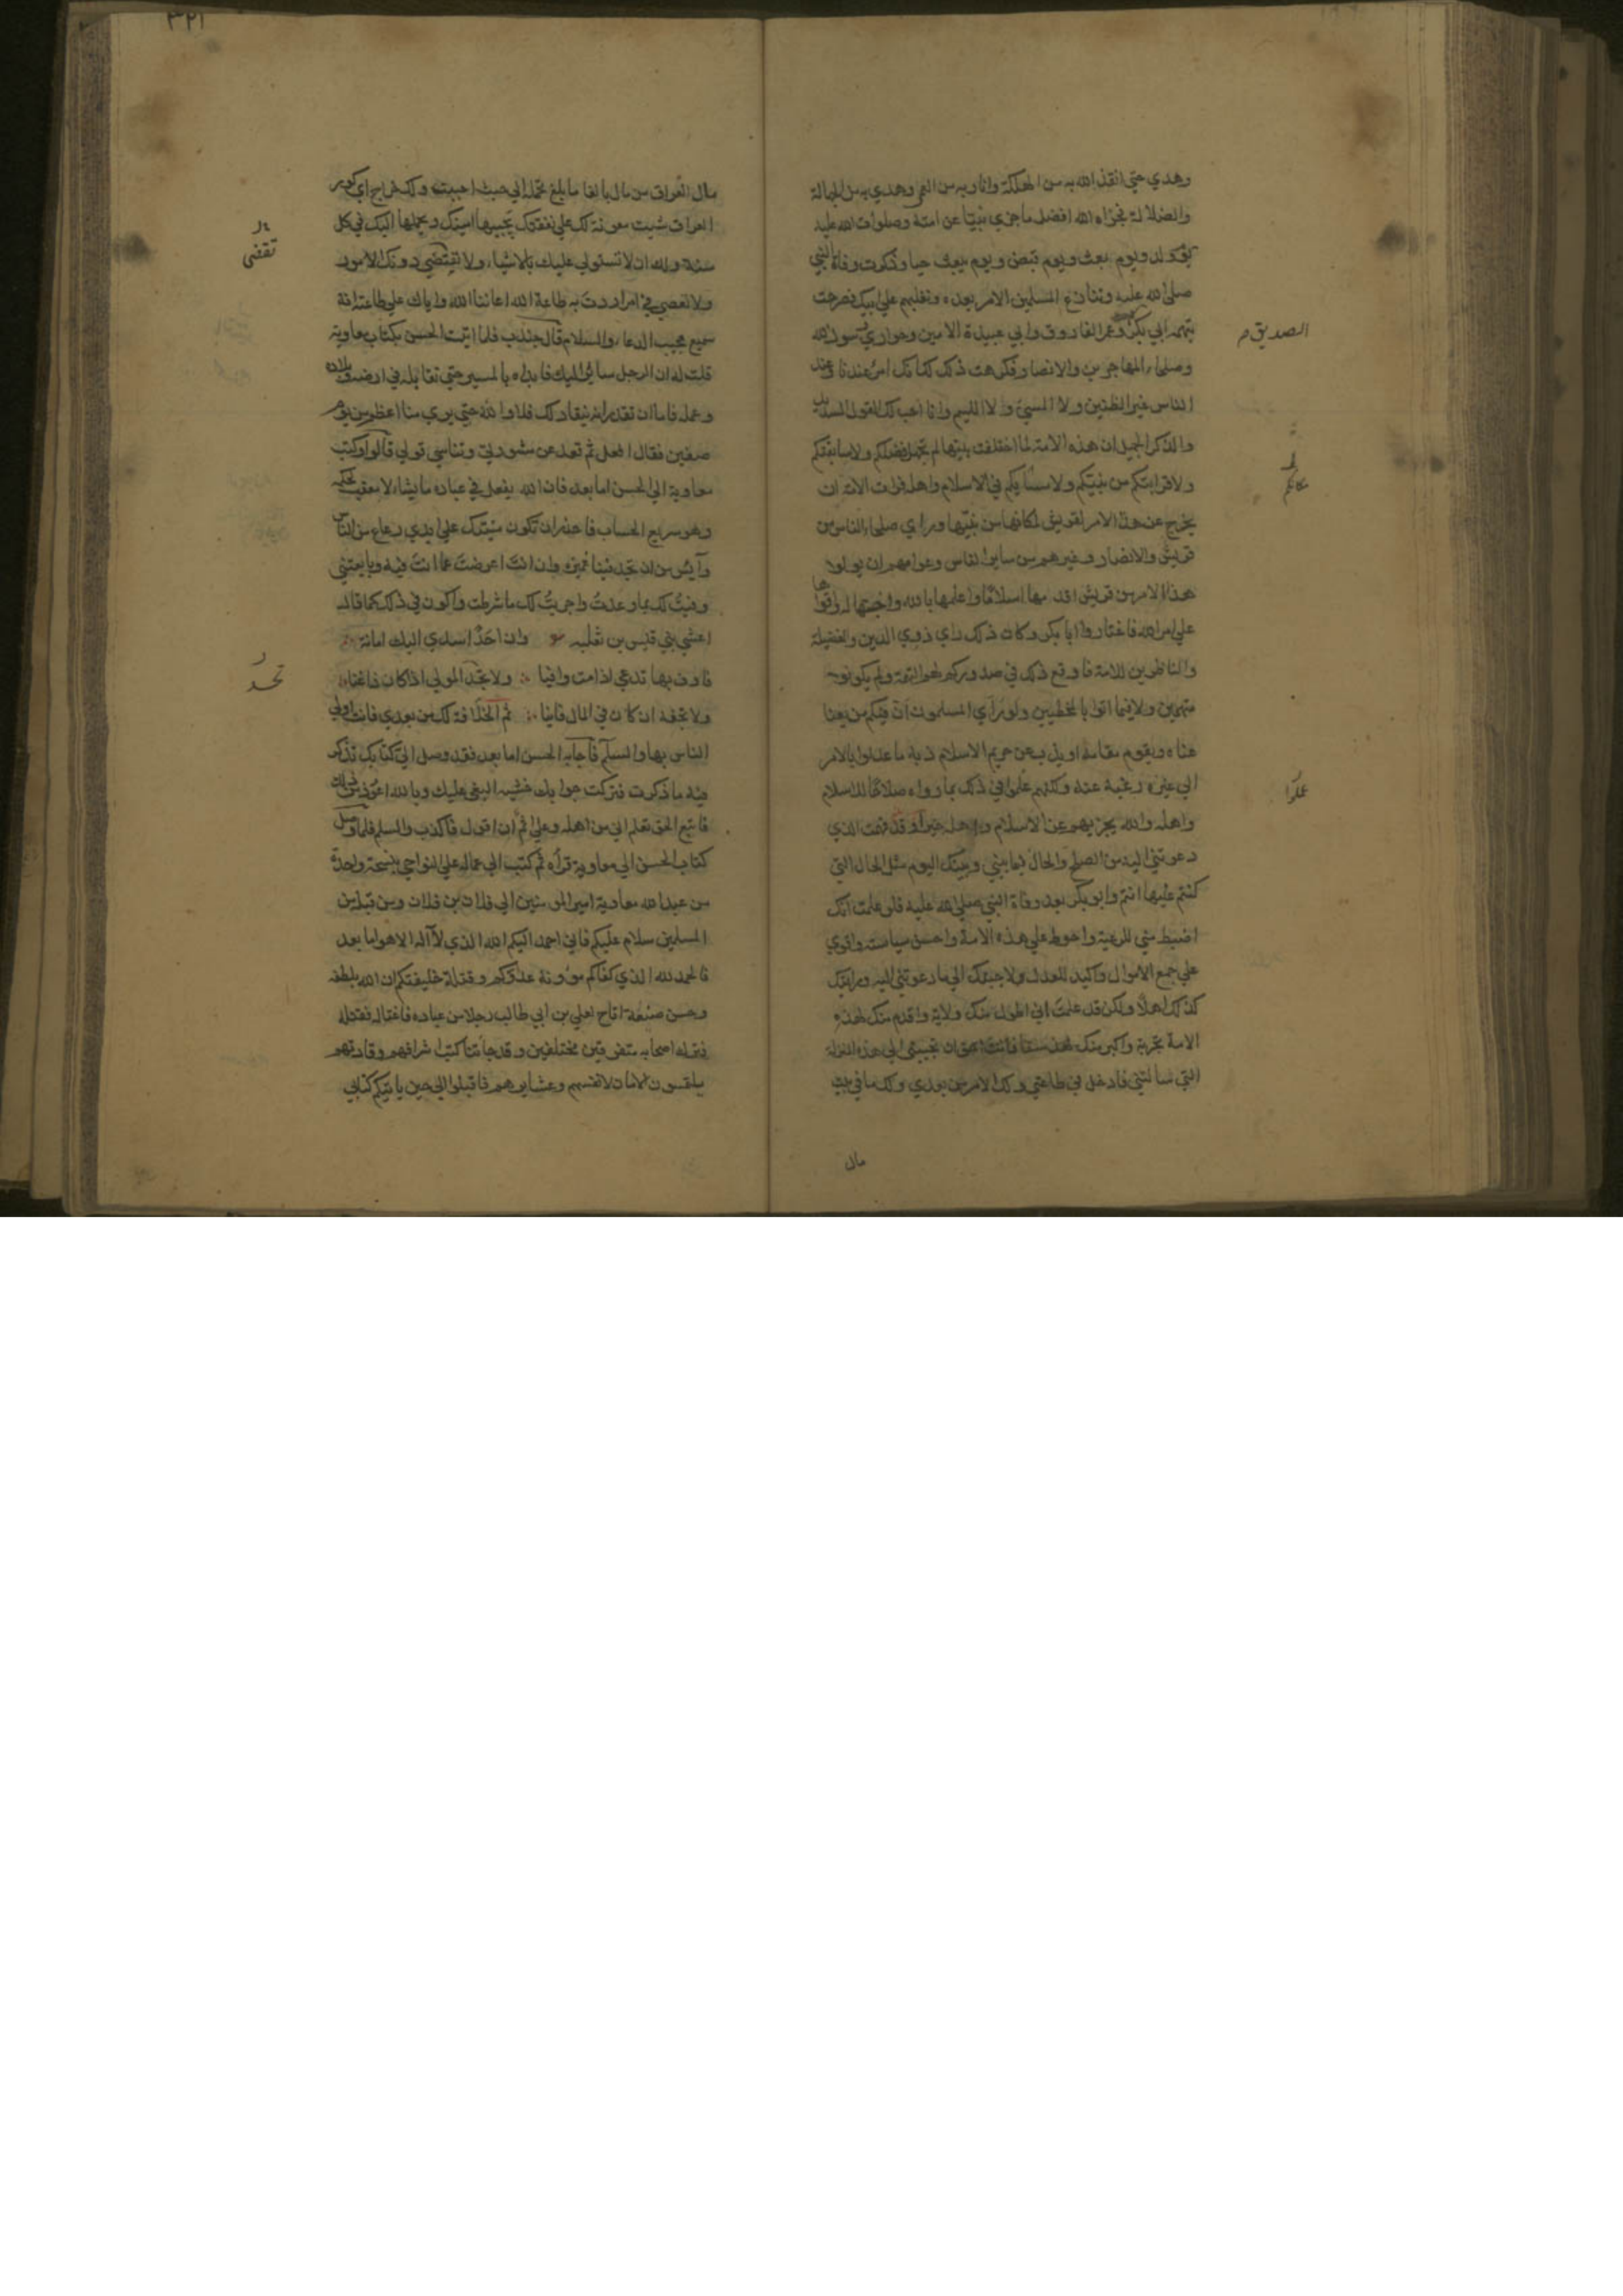 وهدي حتي انقذ الله به من الهلكة وانار به من العمي وهدي به من الجهالة
والضلالة فجزاه الله افضل ما جزي نبيا عن امته وصلوات الله عليه
يوم ولد ويوم بعث ويوم قبض ويوم يبعث حيا وذكرت وفاة النبي
صلى الله عليه وتنازع المسلمين الامر بعده وتغلبهم علي ابيك فصرحت
بتهمة ابي بكر وعمر الفاروق وابي عبيدة الامين وحواري رسول الله
الصديق م
وصلحاء المهاجرين والانصار فكرهت ذلك لك انك امرء عندنا وعند
الناس غير الظنين ولا المسيئ ولا اللئيم وانا احب لك القول السديد
والذكر الجميل ان هذه الامة لما اختلفت بينها لم تجهل فضلكم ولا سابقتكم
ولا قرابتكم من نبيكم ولا مكانكم في الاسلام واهله فرات الامة ان
مكانكم
يخرج عن هذا الامر لقريش لمكانها من نبيها وراي صلحاء الناس من
قريش والانصار وغيرهم من ساير الناس وعوامهم ان يولوا
هذا الامر من قريش اقدمها اسلاما واعلمها بالله واحبها له واقواها
علي امر الله فاختاروا ابا بكر وكان ذلك راي ذوي الدين والفضيلة
والناظرين للامة فاوقع ذلك في صدوركم لهم التهمة ولم يكونوا
متهمين ولا فيما اتوا بالمخطيين ولو راي المسلمون ان فيكم من يغنا
غناه ويقوم مقامه او يذب عن حريم الاسلام ذبه ما عدلوا بالامر
الي غيره رغبة عنه ولكنهم عملوا في ذلك بما رواه صلاحا للاسلام
عملوا
واهله والله يجزيهم عن الاسلام واهله خيرا وقد فهمت الذي
دعوتني اليه من الصلح والحال فيما بيني وبينك اليوم مثل الحال التي
كنتم عليها انتم وابو بكر بعد وفاة النبي صلى الله عليه فلو علمت انك
اضبط مني للرعية واحوط علي هذه الامة واحسن سياسة واقوي
علي جمع الاموال واكيد للعدو لاجبتك الي ما دعوتني اليه ورايتك
لذلك اهلا ولكن قد علمت اني اطول منك ولاية واقدم منك لهذه
الامة تجربة واكبر منك سنا فانت احق ان تجيبني الي هذه المنزلة
التي سالتني فادخل في طاعتي ولك الامر من بعدي ولك ما في بيت
مال
٣٢١
مال العراق من مال بالغا ما بلغ تحمله الي حيث احببت ولك خراج اي كور
العراق شيت معونة لك علي نفقتك يجبيها امينك ويحملها اليك في كل
سنة ولك ان لا تستولي عليك بالاشياء ولا تقتضي دونك الامور
تقضى
ولا تعصي في امر اردت به طاعة الله اعاننا الله واياك علي طاعته انه
سميع مجيب الدعاء والسلام قال جندب فلما اتيت الحسن بكتاب معاوية
قلت له ان الرجل سائر اليك فابداه بالمسير حتي تقاتله في ارضه وبلاده
وعمله فاما ان تقدر انه ينقاد لك فلا والله حتي يري منا اعظم من يوم
صفين فقال افعل ثم قعد عن مشورتي وتناسي قولي قالوا وكتب
معاوية الي الحسن اما بعد فان الله يفعل في عباده ما يشاء لا معقب لحكمه
وهو سريع الحساب فاحذر ان تكون منيتك علي ايدي رعاع من الناس
وآيس من ان تجد فينا غميزة وان انت اعرضت عما انت فيه وبايعتني
وفيت لك بما وعدت واجريت لك ما شرطت واكون في ذلك كما قال
اعشي بني قيس بن ثعلبه وان احد اسدي اليك امانة
فاوف بها تدعي اذا مت وافيا ولا تحسد المولي اذا كان ذا غناء
تحسد
ولا تجفه ان كان في المال فانيا ثم الخلافة لك من بعدي فانت اولي
الناس بها والسلم فاجابه الحسن اما بعد فقد وصل الي كتابك تذكر
فيه ما ذكرت فتركت جوابك خشية البغي عليك وبالله اعوذ من ذلك
فاتبع الحق تعلم اني من اهله وعلي اثم ان اقول فاكذب والسلم فلما وصل
كتاب الحسن الي معاوية قرأه ثم كتب الي عماله علي النواحي بنسخة واحدة
من عبد الله معاوية امير المومنين الي فلان بن فلان ومن قبله من
المسلمين سلام عليكم فاني احمد اليكم الله الذي لا اله الا هو اما بعد
فالحمد لله الذي كفاكم مؤونة عدوكم وقتلة خليفتكم ان الله بلطفه
وحسن صنعه اتاح لعلي بن ابي طالب رجلا من عباده فاغتاله فقتله
فترك اصحابه متفرقين مختلفين وقد جاءتنا كتب اشرافهم وقادتهم
يلتمسون الامان لانفسهم وعشايرهم فاقبلوا الي حين ياتيكم كتابي